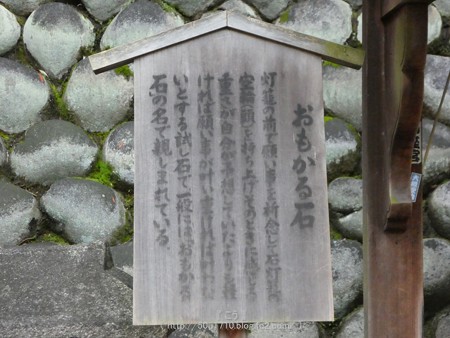 おもかる石
灯篭の前で願い事を祈念し石灯篭の
空輪（頭）を持ち上げ、そのときに感じる
重さが、自分が予想していたよりも軽
ければ願い事が叶い、重ければ叶わな
いとする試し石で一般には「おもかる
石」の名で親しまれている。